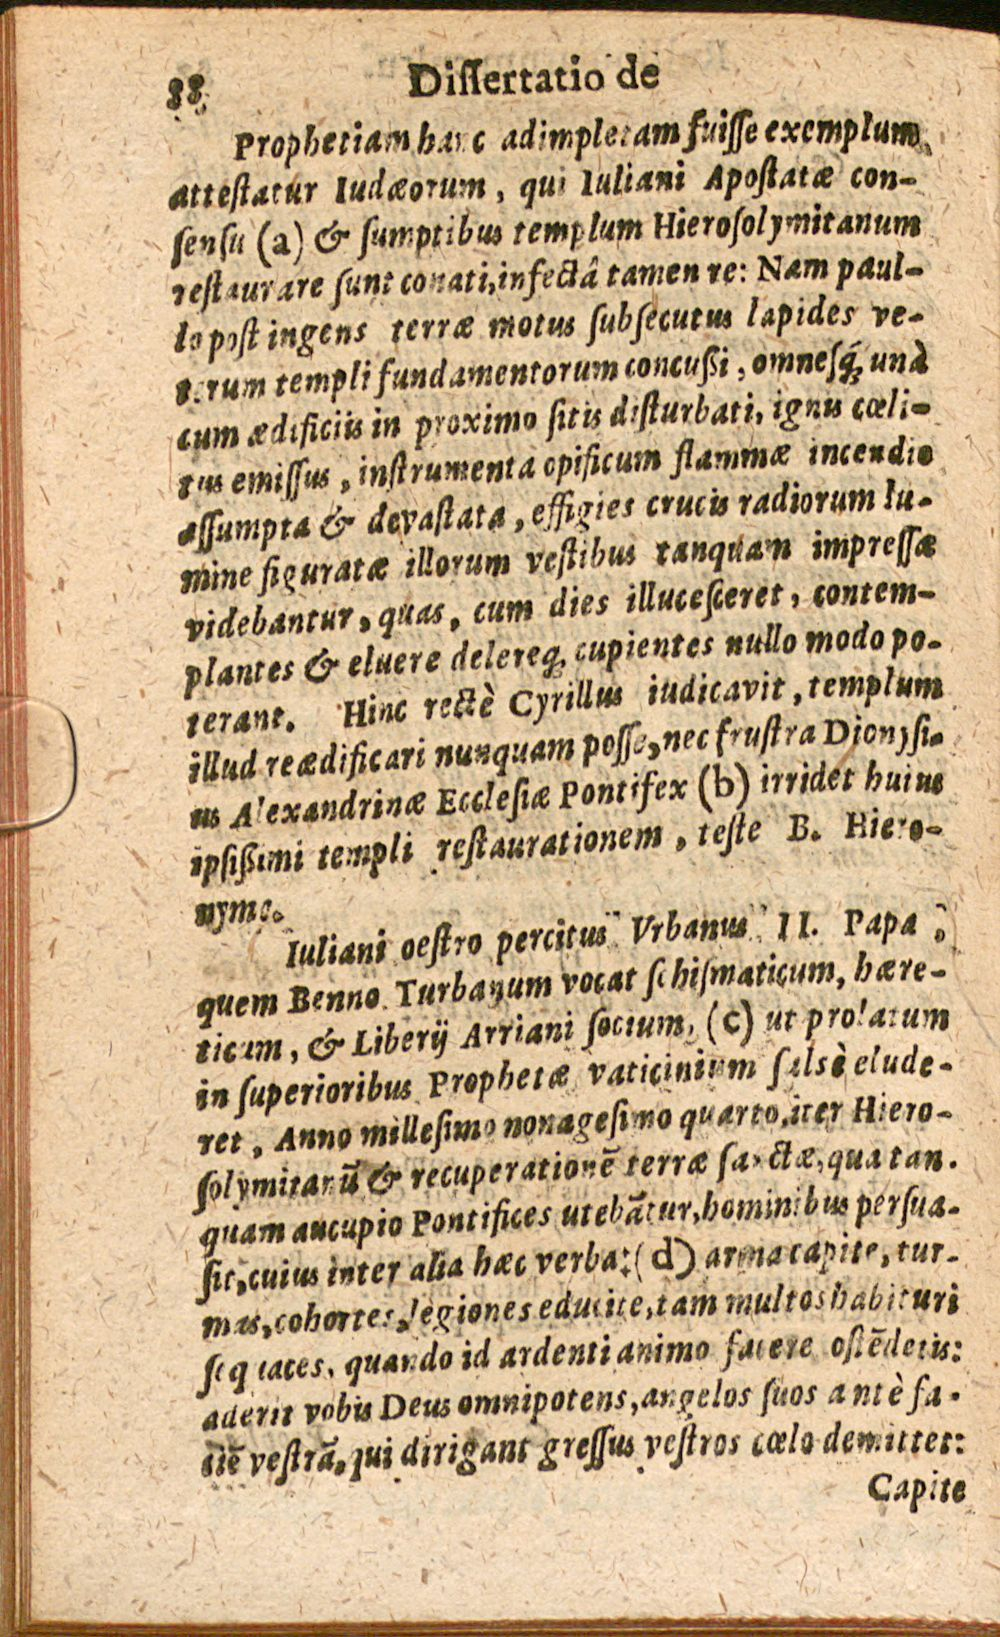 88 Dissertatio de
Prophetiam hanc adimpletam fuiſſe exemplum
atteſtatur Iudæorum, qui Iuliani Apoſtatæ con-
ſenſu (a) & ſumptibus templum Hieroſolymitanum
reſtaurare ſunt conati, infectâ tamen re: Nam paul-
lo poſt ingens terræ motus ſubſecutus lapides ve-
terum templi fundamentorum concußi, omneſq́; unà
cum ædificiis in proximo ſitis diſturbati, ignis cœli-
tus emiſſus, inſtrumenta opificum flammæ incendio
aſſumpta & devaſtata, effigies crucis radiorum lu-
mine figuratæ illorum veſtibus tanquam impreſſæ
videbantur, quas, cum dies illuceſceret, contem-
plantes & eluere delereq; cupientes nullo modo po-
terant. Hinc rectè Cyrillus iudicavit, templum
illud reædificari nunquam poſſe, nec fruſtra Dionyſi-
us Alexandrinæ Eccleſiæ Pontifex (b) irridet huius
ipſißimi templi reſtaurationem, teſte B. Hiero-
nymo.
Iuliani oeſtro percitus Vrbanus II. Papa,
quem Benno Turbanum vocat ſchiſmaticum, hære-
ticum, & Liberij Arriani ſocium, (c) ut prolatum
in ſuperioribus Prophetæ vaticinium falsè elude-
ret, Anno milleſimo nonageſimo quarto, iter Hiero-
ſolymitanū & recuperationē terræ ſanctæ, qua tan-
quam aucupio Pontifices utebātur, hominibus perſua-
ſit, cuius inter alia hæc verba: (d) arma capite, tur-
mas, cohortes, legiones educite, tam multos habituri
ſequaces, quando id ardenti animo facere oſtēdetis:
aderit vobis Deus omnipotens, angelos ſuos antè fa-
ciē veſtrā, qui dirigant greſſus veſtros cœlo demittet:
Capite